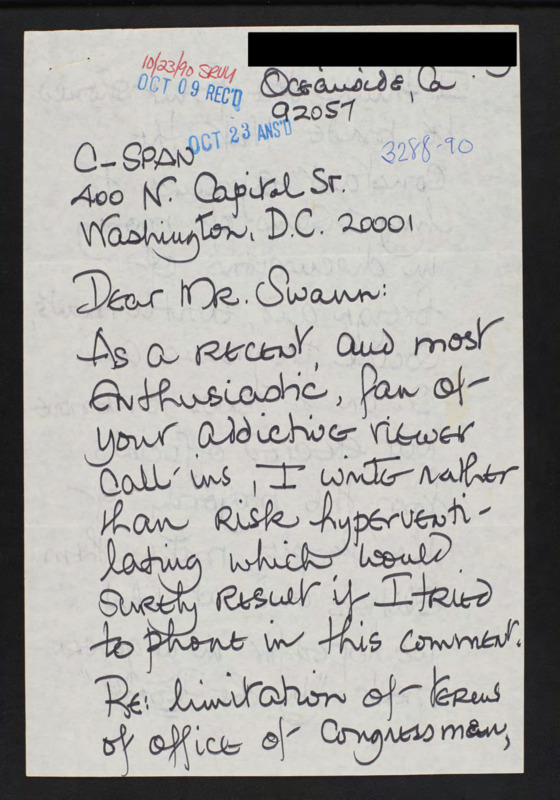 10/23/90 SRVM
OCT 09 REC'D
Oceanside, Ca
92057
OCT 23 ANS'D
3288-90
C-SPAN
400 N. Capitol St.
Washington, D.C. 20001
Dear Mr. Swann:
As a recent, and most
enthusiastic, fan of
your addictive viewer
call-ins, I write rather
than risk hyperventi-
lating which would
surely result if I tried
to phone in this comment.
Re: limitation of terms
of office of Congressmen,